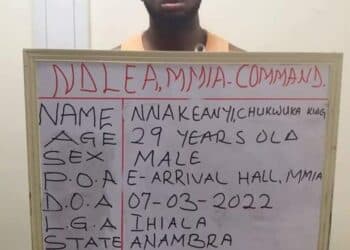 NDLEA, MMIA-COMMAND.
NAME NNAKEANYI, CHUKWUKA KING
AGE 29 YEARS OLD
SEX MALE
P.O.A E-ARRIVAL HALL, MMIA
D.O.A 07-03-2022
L.G.A IHIALA
STATE ANAMBRA